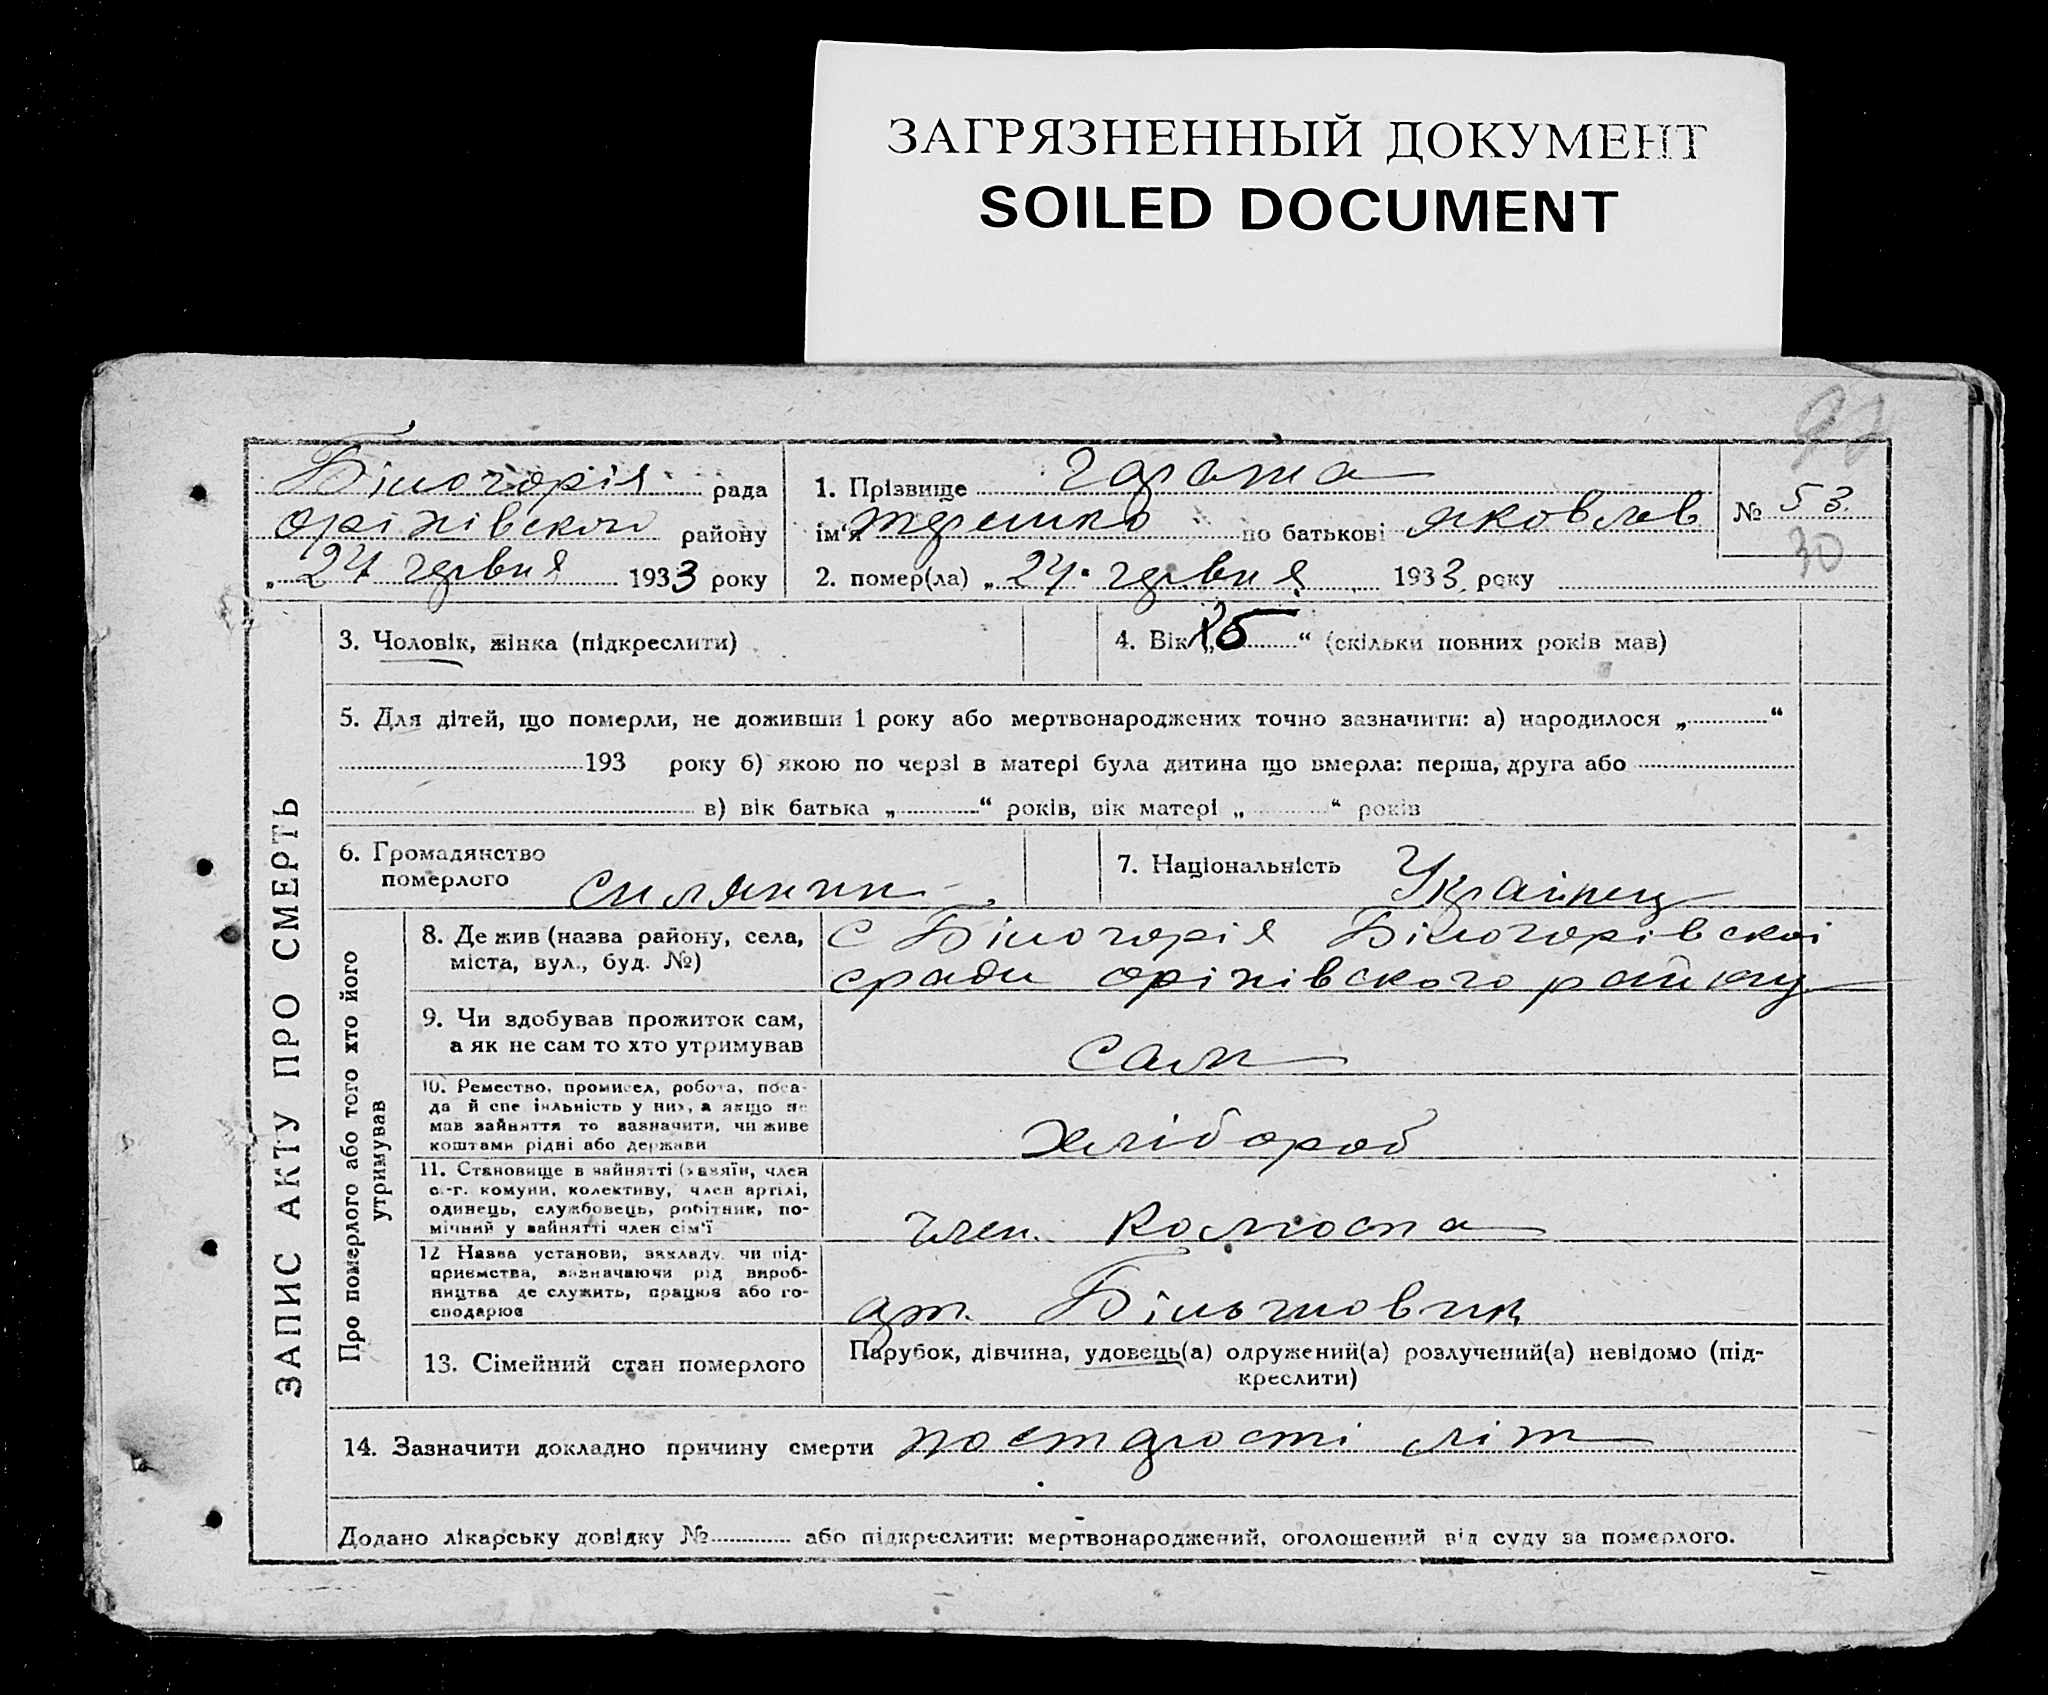 ЗАГРЯЗНЕННЫЙ ДОКУМЕНТ
SOILED DOCUMENT
Білогорія рада
оріхівского району
„ 24 червня 1933 року
1. Прізвище
ім'я терешко по батькові яковлев
2. помер(ла) „ 24 червня 1933 року
№ 53
30
ЗАПИС АКТУ ПРО СМЕРТЬ
3. Чоловік, жінка (підкреслити)
4. Вік „ “ (скільки повних років мав)
5. Для дітей, що померли, не доживши 1 року або мертвонароджених точно зазначити: а) народилося „ “
193 року б) якою по черзі в матері була дитина що вмерла: перша, друга або
в) вік батька „ “ років, вік матері „ “ років
6. Громадянство
померлого силянин
7. Національність Українец
Про померлого або того хто його
утримував
8. Де жив (назва району, села,
міста, вул., буд. №)
с Білогорія Білогорівскої
сради оріхівского району
9. Чи здобував прожиток сам,
а як не сам то хто утримував
сам
10. Ремество, промисел, робота, поса-
да й спеціяльність у них, а якщо не
мав зайняття то зазначити, чи живе
коштами рідні або держави
хлібороб
11. Становище в зайнятті (хазяїн, член
с.-г. комуни, колективу, член артілі,
одинець, службовець, робітник, по-
мічний у зайнятті член сім'ї
член. колгоспа
12 Назва установи, закладу чи під-
приємства, зазначаючи рід вироб-
ництва де служить, працює або го-
сподарює
арт. Більшовик
13. Сімейний стан померлого
Парубок, дівчина, удовець(а) одружений(а) розлучений(а) невідомо (під-
креслити)
14. Зазначити докладно причину смерти по старості літ
Додано лікарську довідку № або підкреслити: мертвонароджений, оголошений від суду за померлого.